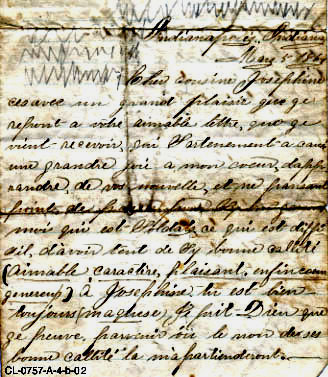 Indianapolis, Indiana
May 5 186
Cher cousine Josephine
cesavec un grand plaisir que ge
repont a votre aimable lettre, que ge
vient recevoir, qui Sartenement a
une grandre joie a mon coeur, dap
randre, de vos nouvelle, et ne
point de
moi qui est Soldat, ce qui est diffi
sil, d'avoir tout de Sy bonne callité
(aimable) caractire, plaisant, enfin coeur
genereup) à Josephine tu est bien
toujours (maquese) Je prit Dieu que
ge peuve, parvenir ou le non de ses
bonne callité la mapartienderont.
CL-0757-A-4-b-02